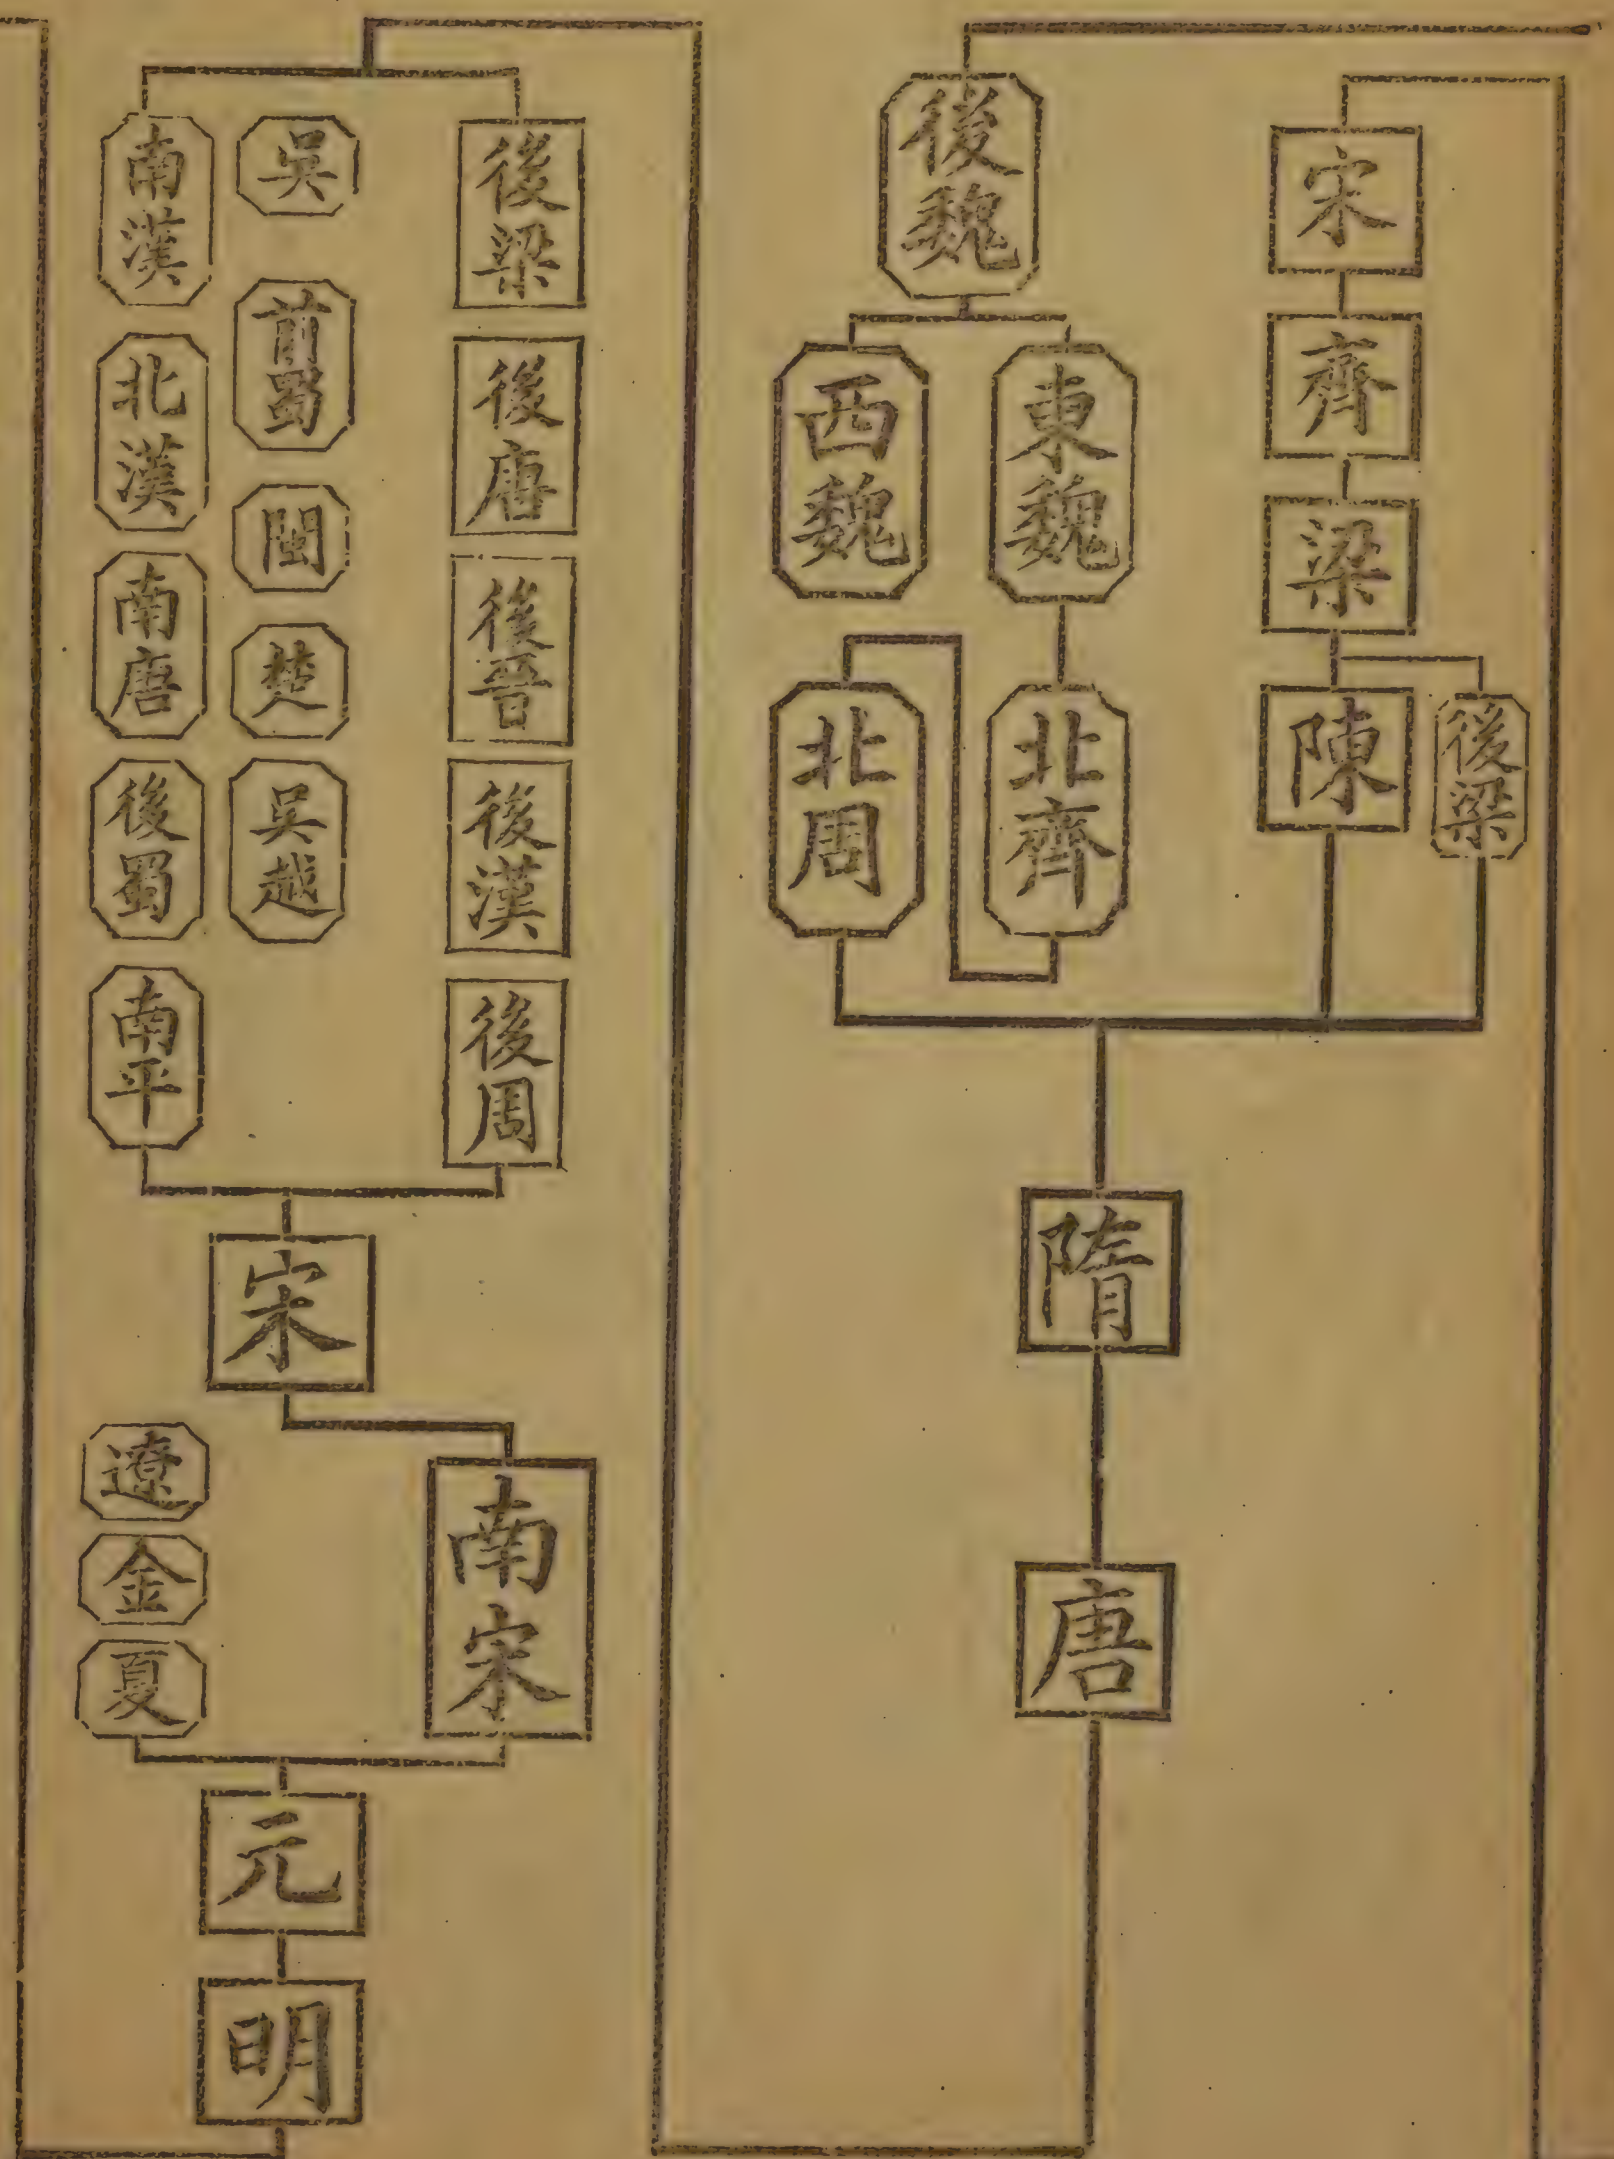 宋
齊
梁
陳
後梁
後魏
東魏
西魏
北齊
北周
隋
唐
後梁
後唐
後晉
後漢
後周
吳
前蜀
閩
楚
吳越
南漢
北漢
南唐
後蜀
南平
宋
南宋
遼
金
夏
元
明